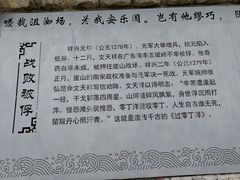 嗟哉沮洳场，为我安乐国。岂有他缪巧，阴
战败被俘
祥兴元年（公元1278年），元军大举增兵，抗元陷入
低谷，十二月，文天祥在广东海丰五坡岭不幸被俘，他吞
药自尽未成，被押往崖山战场。祥兴二年（公元1279年）
正月，崖山的南宋政权准备与元军决一死战，元军统帅张
弘范命文天祥写信劝降，文天祥以诗明志：“辛苦遭逢起
一经，干戈寥落四周星。山河破碎风飘絮，身世浮沉雨打
萍。惶恐滩头说惶恐，零丁洋里叹零丁。人生自古谁无死，
留取丹心照汗青。”这就是流传千古的《过零丁洋》。